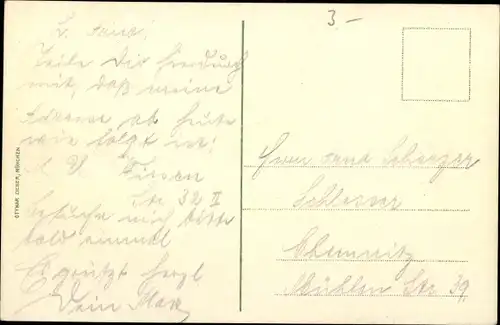 3.-
L.
Teile Dir hierdurch
mit, daß meine
Adresse ab heute
wie folgt ist:
Str 32 II
Besuche mich bitte
bald einmal
Es grüßt herzl
Dein Max
OTTMAR ZIEHER, MÜNCHEN
Herrn
Schlosser
Chemnitz
Mühlen Str 39